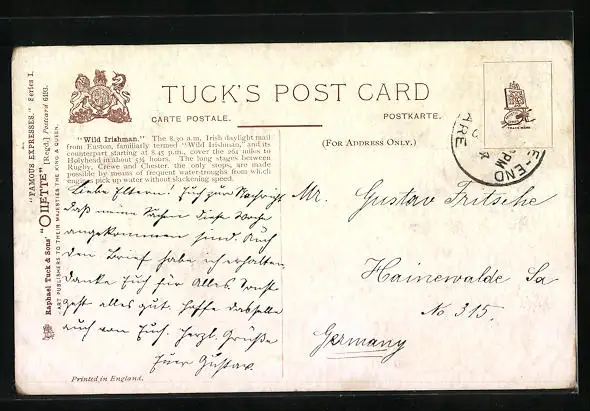 TUCK'S POST CARD
CARTE POSTALE.
POSTKARTE.
(For Address Only.)
TRADE MARK
"Wild Irishman." The 8.30 a.m. Irish daylight mail
from Euston, familiarly termed "Wild Irishman," and its
counterpart starting at 8.45 p.m., cover the 264 miles to
Holyhead in about 5¾ hours. The long stages between
Rugby, Crewe and Chester, the only stops, are made
possible by means of frequent water-troughs from which
engines pick up water without slackening speed.
Liebe Eltern! Euch zur Nachricht
daß meine Sachen diese Woche
angekommen sind. Auch
den Brief habe ich erhalten.
Danke Euch für Alles. Sonst
geht alles gut. Hoffe dasselbe
auch von Euch. Herzl. Grüße
Euer Gustav
Mr. Gustav Fritsche
Hainewalde Sa
No 315.
Germany
E. END
PM
ARE
Printed in England.
"FAMOUS EXPRESSES." Series I.
Raphael Tuck & Sons' "OILETTE" [Regd.] Postcard 6493.
ART PUBLISHERS TO THEIR MAJESTIES THE KING & QUEEN.